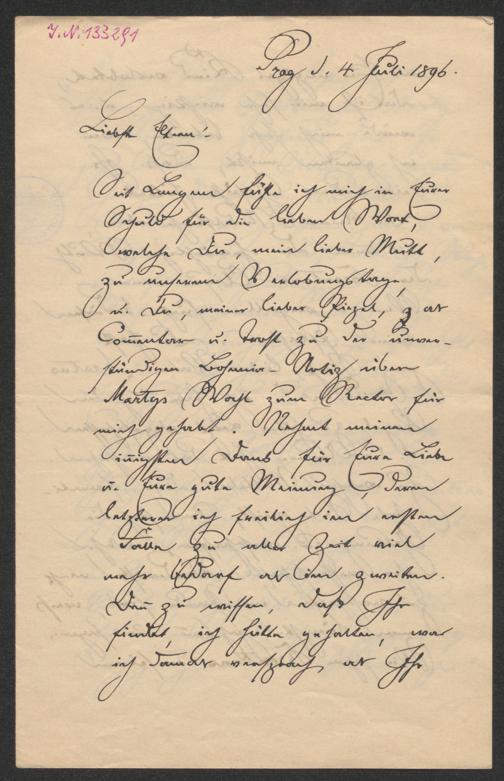 J.N. 133291
Prag d. 4. Juli 1896.
Liebste Eltern!
Seit Langem fühle ich mich in Eurer
Schuld für die lieben Worte,
welche Du, mein lieber Mutt,
zu unserem Verlobungstage,
u. Du, meiner lieber als
Commentar u. Trost zu der unver-
ständigen Bohemia-Notiz über
Martys Wahl zum Rector für
mich gehabt. Nehmt meinen
innigsten Dank für Eure Liebe
u. Eure gute Meinung, deren
letzteren ich freilich im ersten
Falle zu aller Zeit viel
mehr bedarf als im zweiten.
Den zu wissen, daß Ihr
findet, ich hätte gehalten, was
ich damals versprach, als Ihr